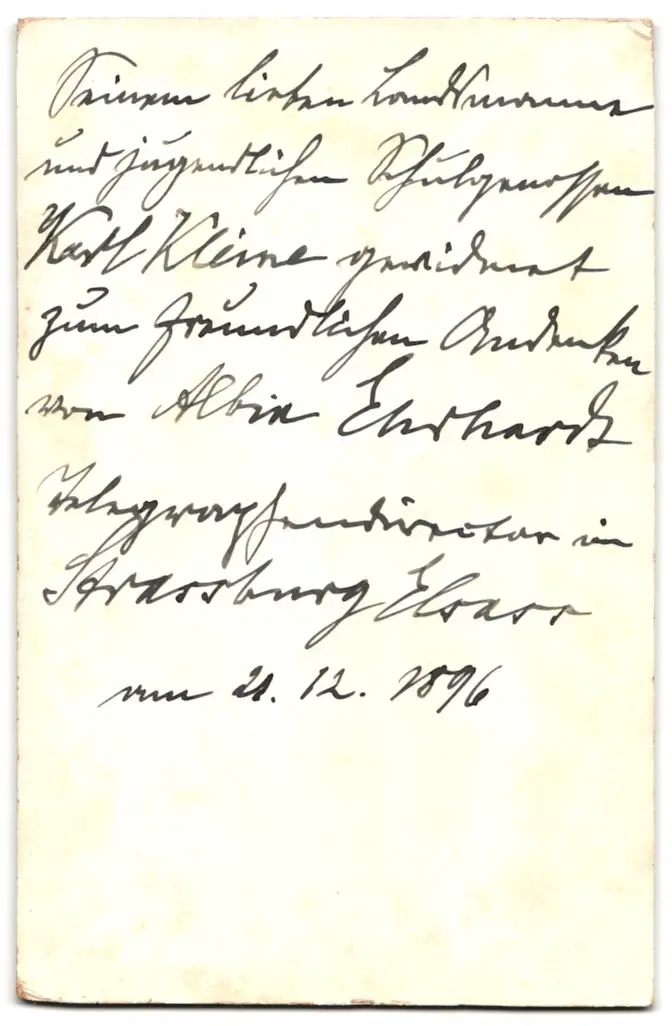 Seinem lieben Landsmanne
und jugendlichen Schulgenossen
Karl Kleine gewidmet
zum freundlichen Andenken
von Albin Ehrhardt
Telegraphendirector in
Strassburg Elsass
am 21. 12. 1896